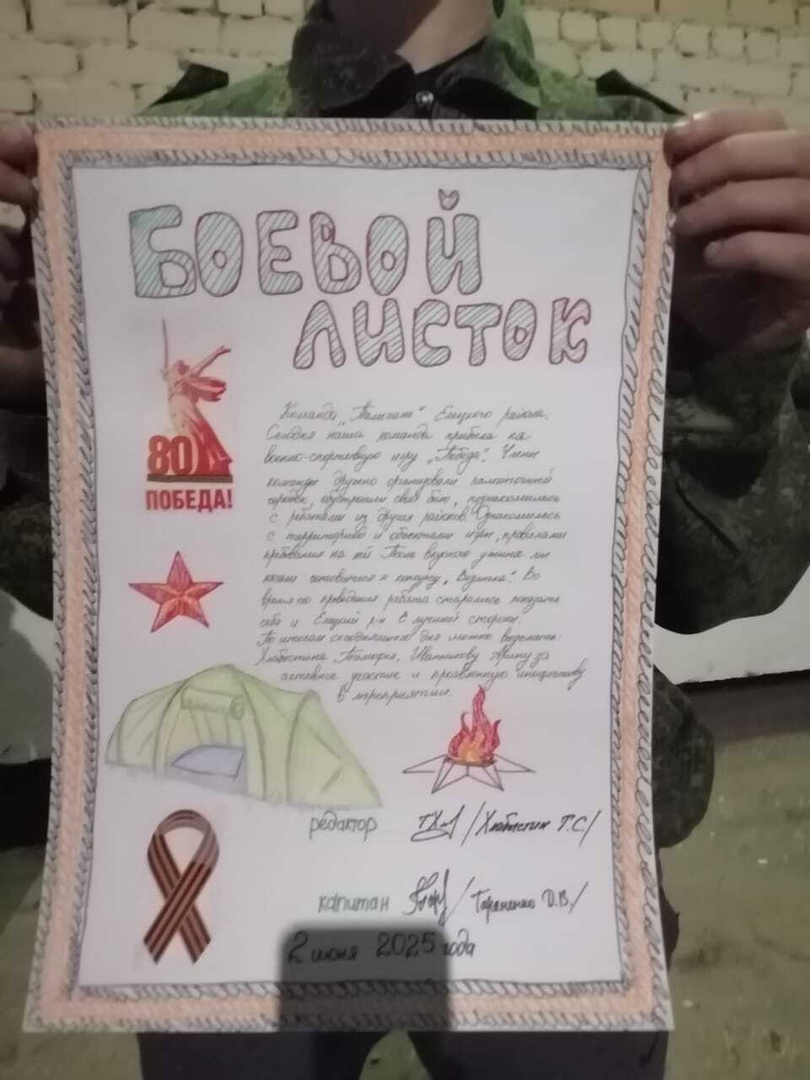 БОЕВОЙ
ЛИСТОК
80
ПОБЕДА!
Команда Ейского района.
Сегодня наша команда прибыла на
военно-спортивную игру „Победа". Члены
команды дружно организовали палаточный
городок, обустроили свой быт, познакомились
с ребятами из других районов. Ознакомились
с территорией и объектами игры, правилами
пребывания на ней. После вкусного ужина мы
начали готовиться к конкурсу „Визитка". Во
время его проведения ребята старались показать
себя и Ейский р-н в лучшей стороне.
По итогам сегодняшнего дня можно выделить:
Хлабыстина Иванникову Арину за
активное участие и проявленную инициативу
в мероприятиях.
редактор /Хлабыстин Т.С./
капитан /Тараненко Д.В./
2 июня 2025 года